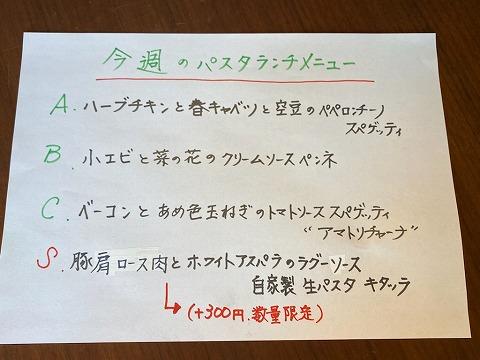 今週のパスタランチメニュー
A. ハーブチキンと春キャベツと空豆のペペロンチーノ
スペゲッティ
B. 小エビと菜の花のクリームソースペンネ
C. ベーコンとあめ色玉ねぎのトマトソーススパゲッティ
"アマトリチャーナ"
S. 豚肩ロース肉とホワイトアスパラのラグーソース
自家製 生パスタ キタッラ
(+300円.数量限定)